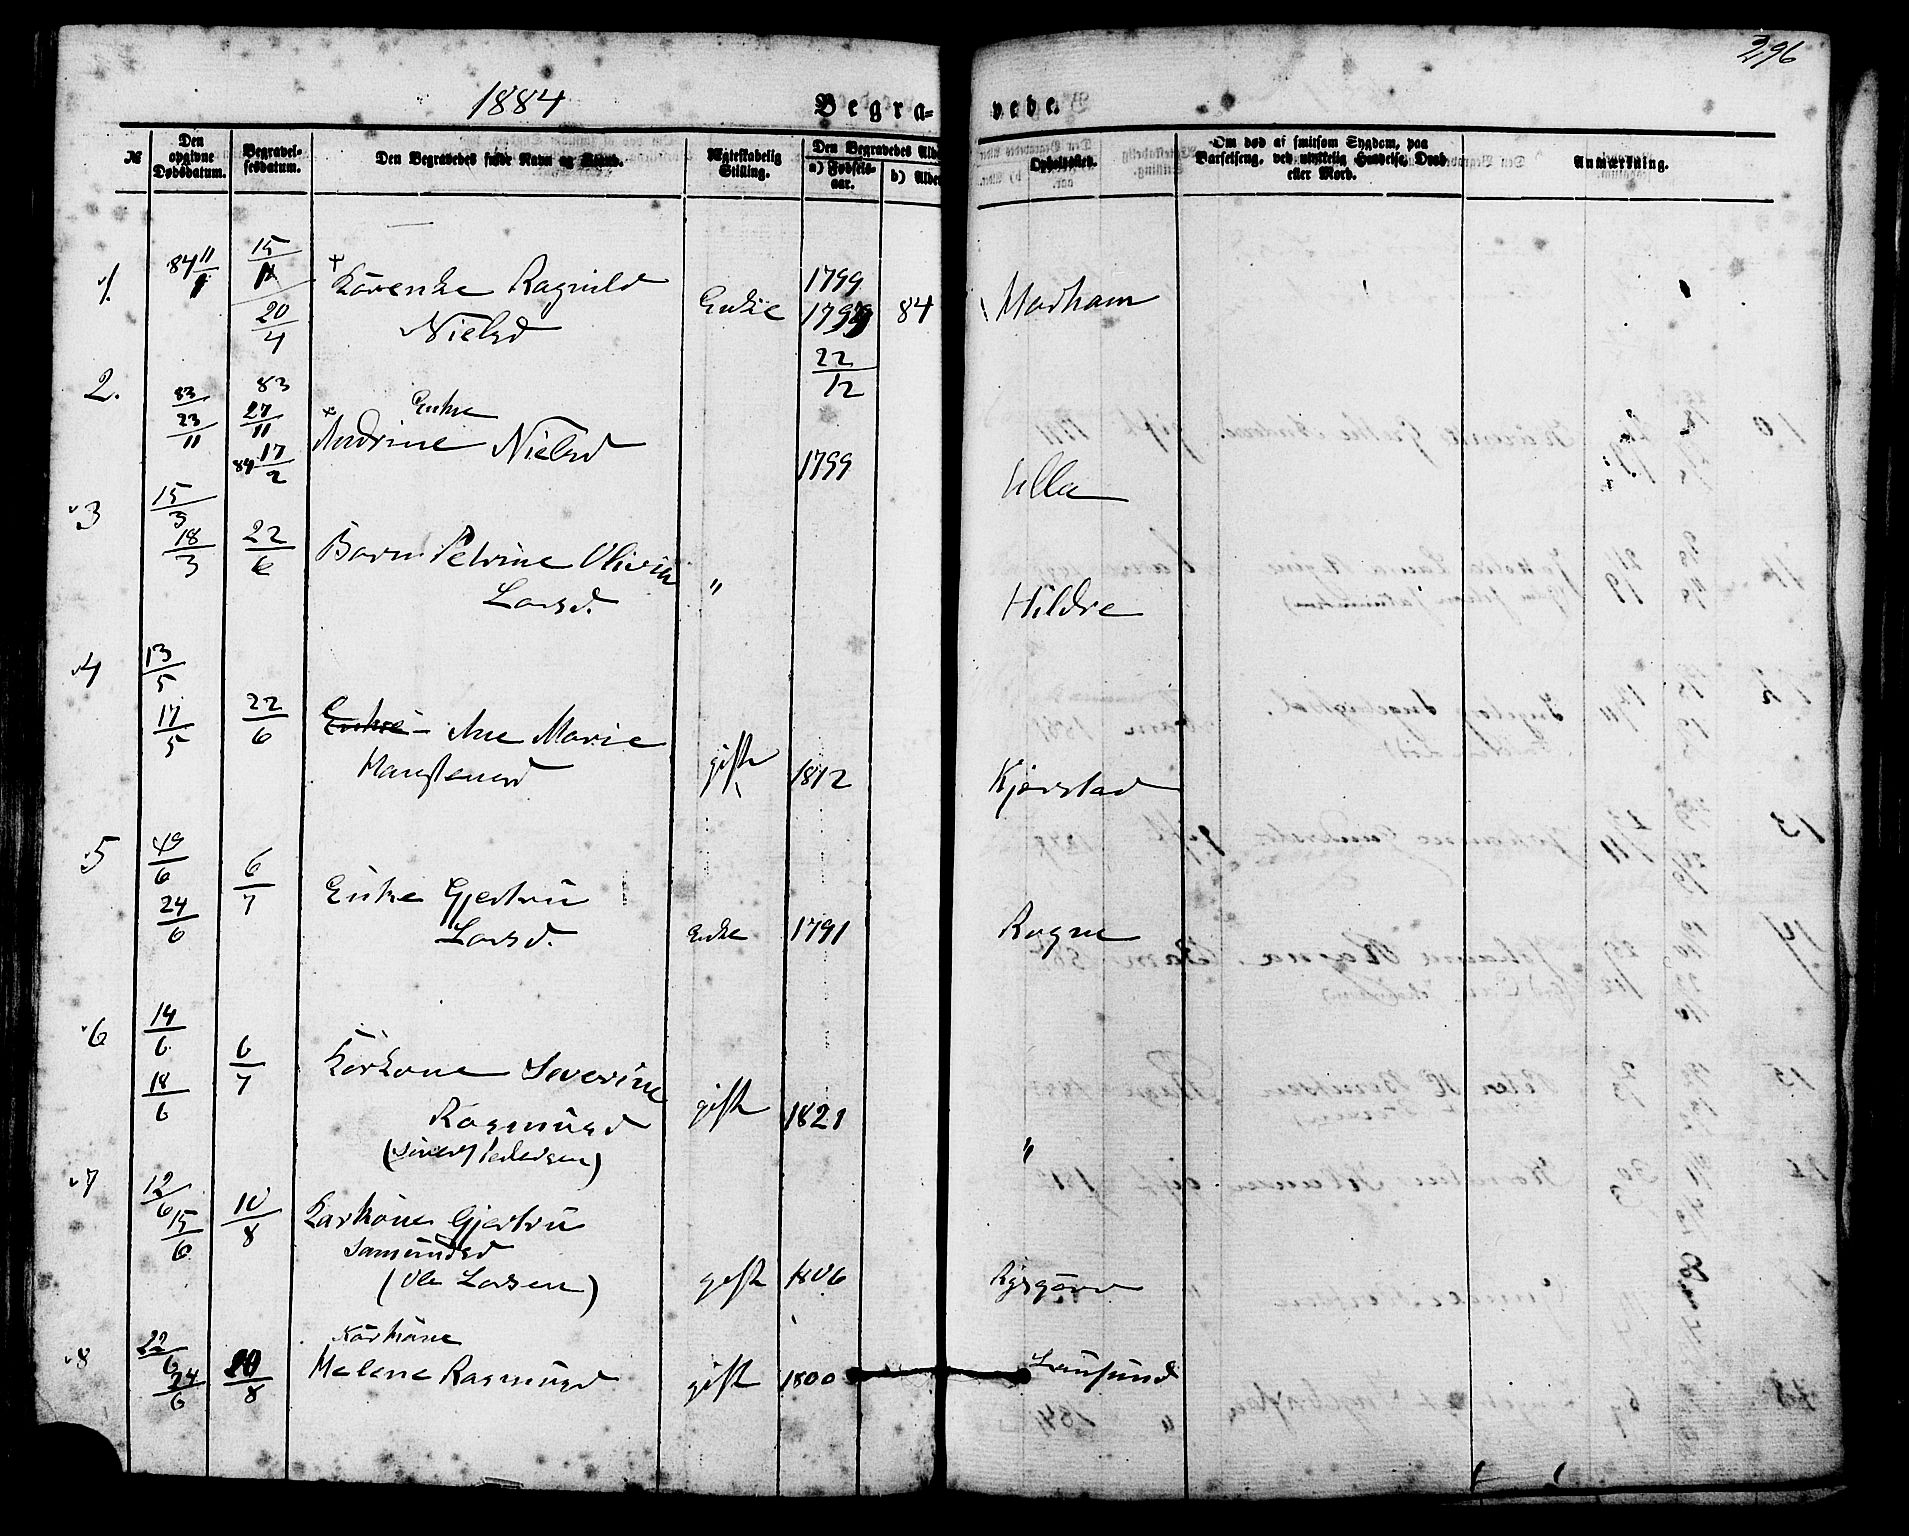 296
1884
Begra-
vede.
№
Den opgivne Dødsdatum.
Begravel-sesdatum.
Den Begravedes fulde Navn og Stand.
Ægteskabelig Stilling.
Den Begravedes Alder
a) Fødsels-aar.
b) Alder
Opholdssted.
Om død af smitsom Sygdom, paa Barselseng, ved ulykkelig Hændelse, Drab eller Mord.
Anmærkning.
1. 84 11/1 15/1 Karenke Ragnild 1799
20/4 Nielsd Enke 1799 84 Marham
22/12
2. 83 83 Enke
23/11 27/11 Andrine Nielsd
84 17/2 1799 Ulla
3 15/3
18/3 22/6 Barn Petrine Olivia
Larsd. " Hildre
4 13/5
17/5 22/6 Enke - Ane Marie
gift 1812 Kjerstad
5 19/6 6/7 Enke Gjertru
24/6 Larsd. Enke 1791 Rogne
6 14/6 6/7 Karkone Severine
18/6 Rasmusd gift 1821
(Sivert Pedersen) "
7 12/6 10/8 Karkone Gjertru
15/6
(Ole Larsen) gift 1806
Karkone
8 22/6 20/8 Melene Rasmusd gift 1800 Longsund
24/6